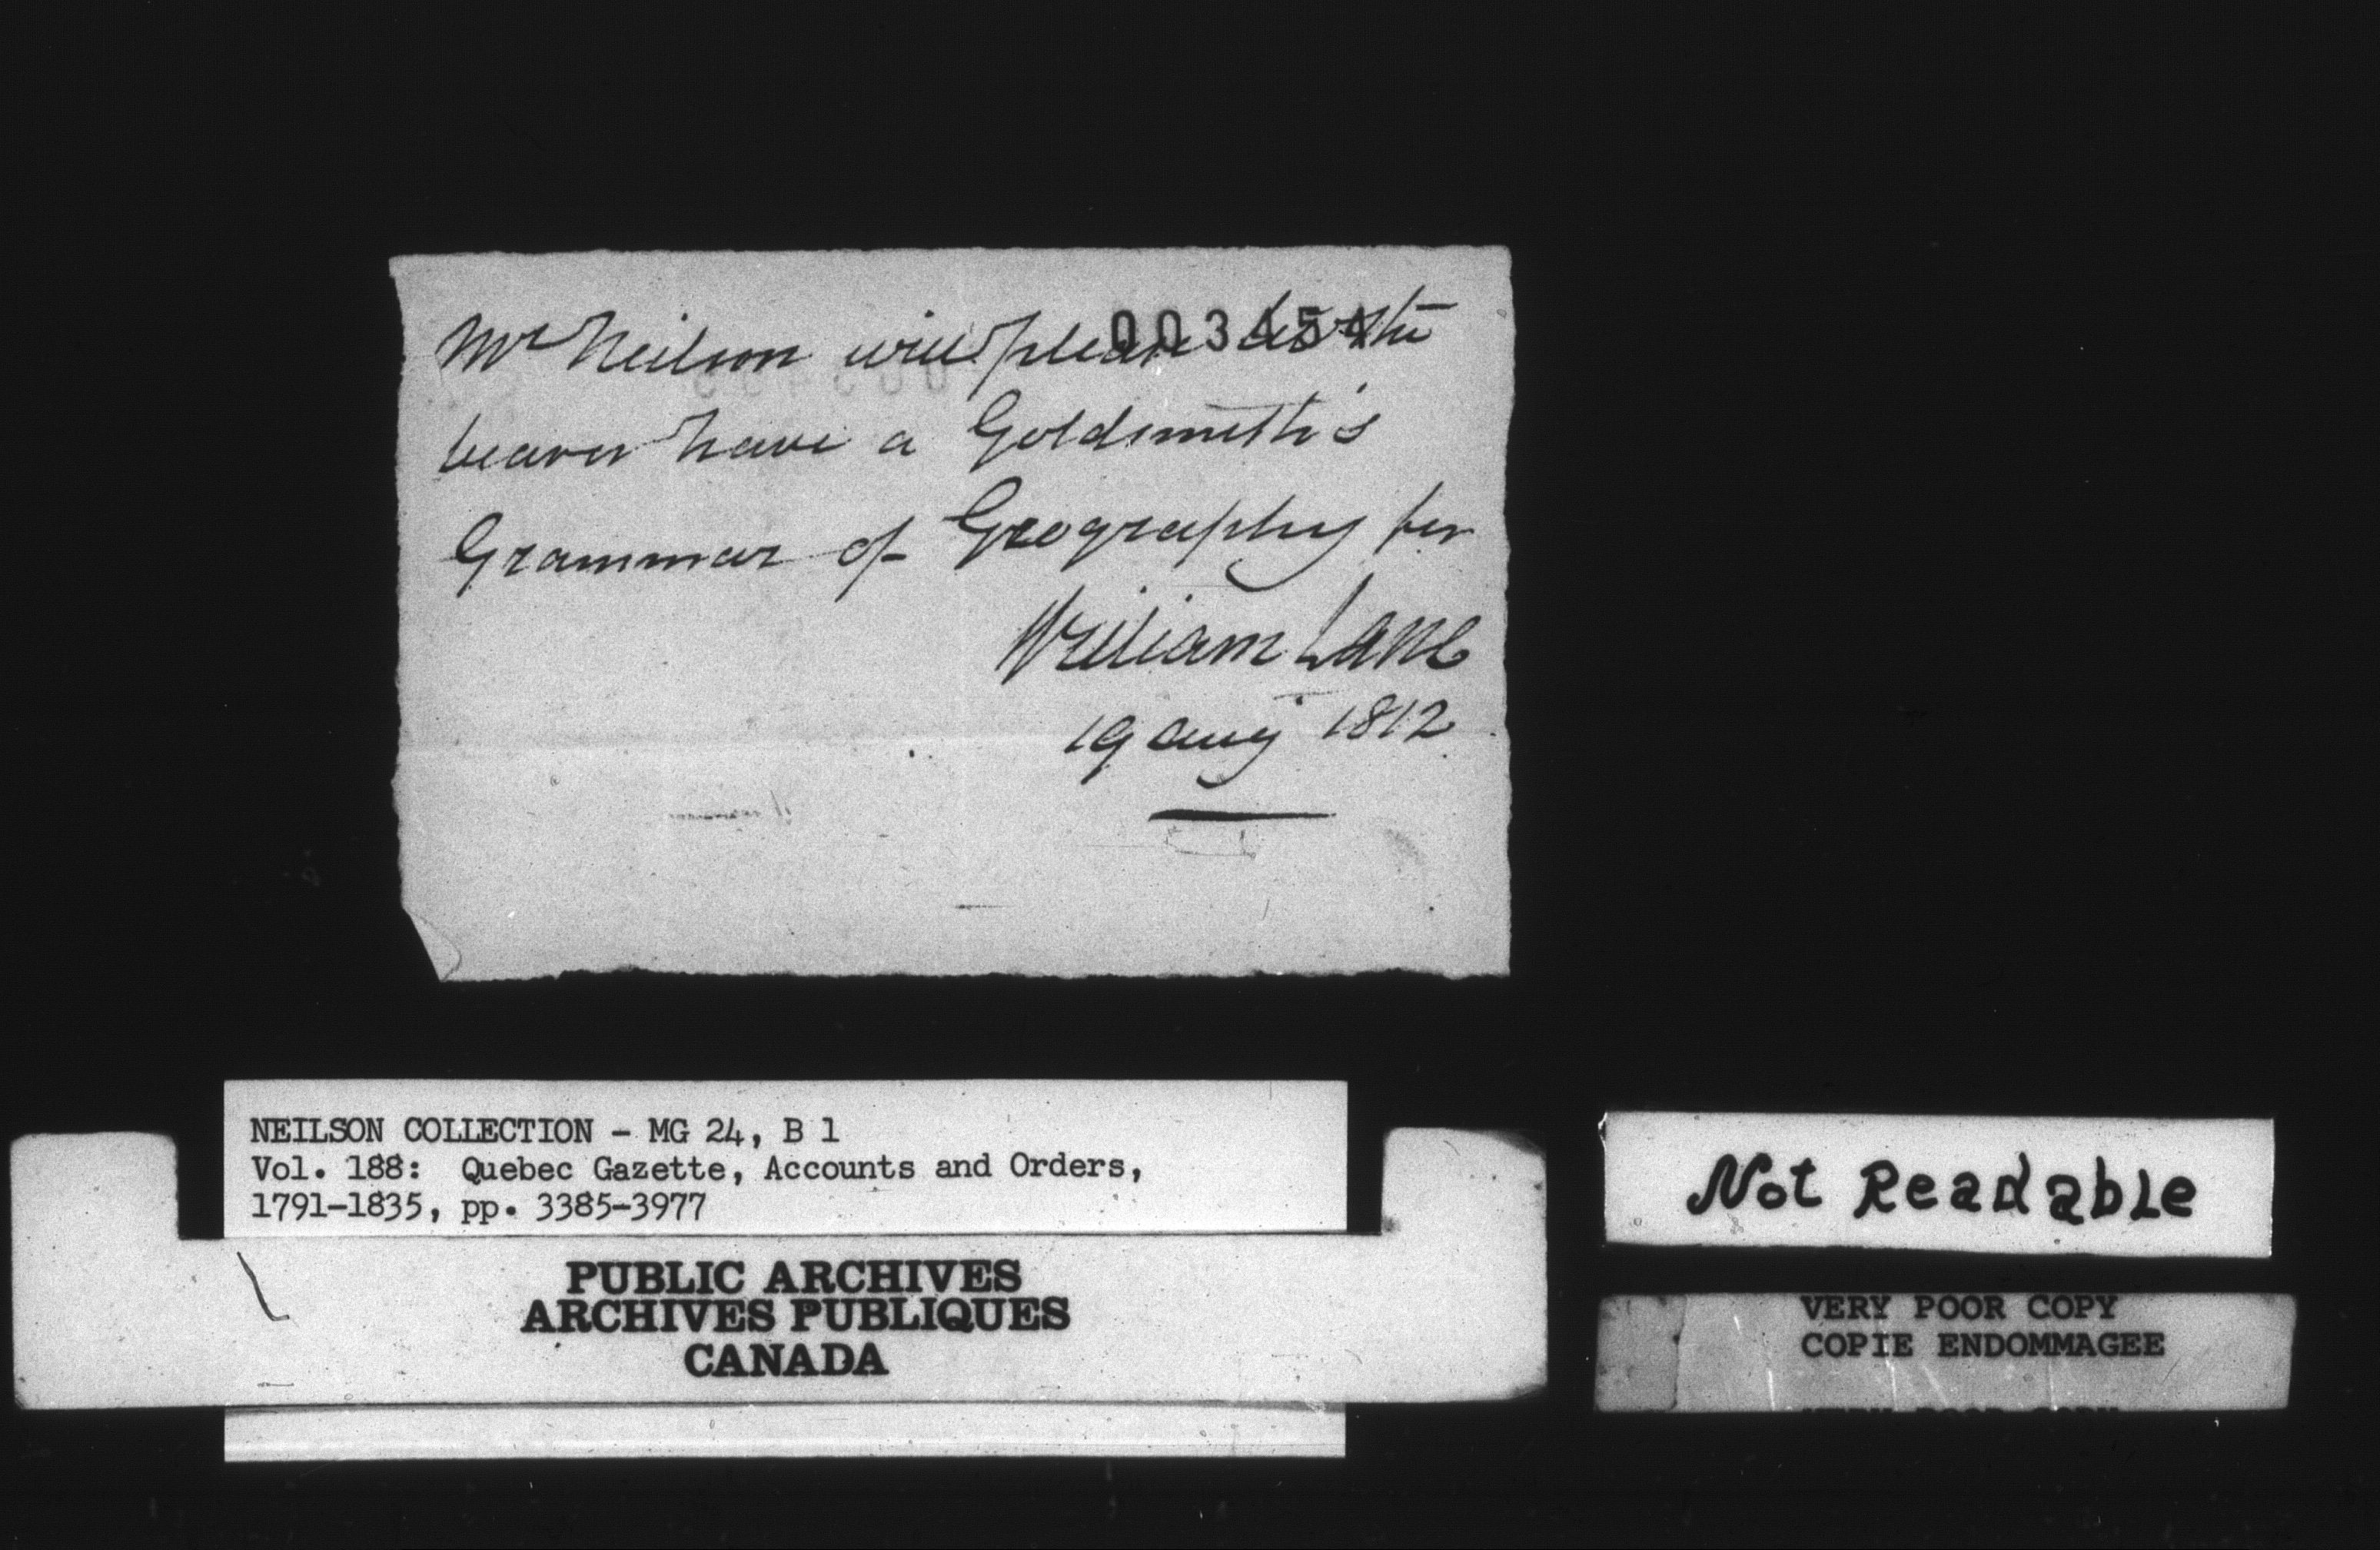 Mr Neilson will please let the
003454
bearer have a Goldsmith's
Grammar of Geography for
William Lane
19 Aug 1812
NEILSON COLLECTION - MG 24, B 1
Vol. 188: Quebec Gazette, Accounts and Orders,
1791-1835, pp. 3385-3977
PUBLIC ARCHIVES
ARCHIVES PUBLIQUES
CANADA
Not Readable
VERY POOR COPY
COPIE ENDOMMAGEE